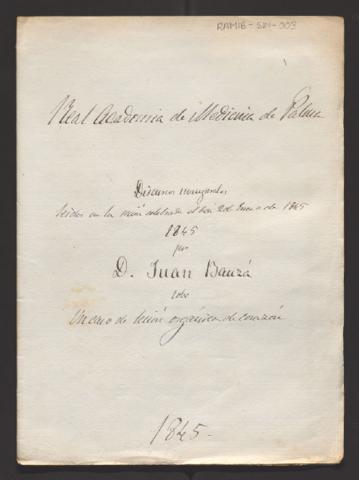 RAMIB-S01-003
Real Academia de Medicina de Palma
Discurso inaugural
leido en la sesión celebrada el dia 2 de Enero de 1845
1845
por
D. Juan Bauzá
sobe
Un caso de lesión orgánica de corazón
1845.-